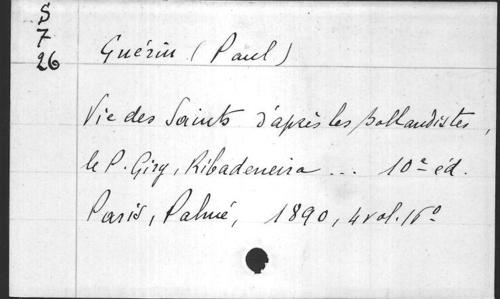 S
7
26
Guérin (Paul)
Vie des Saints d'après les Bollandistes,
le P. Giry, Ribadeneira ... 10e éd.
Paris, Palmé, 1890, 4 vol. 16º